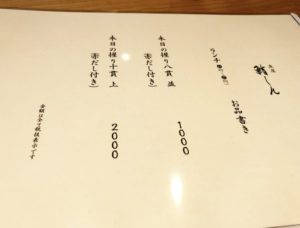 お品書き
ランチ
本日の握り八貫 並 1000
(茶だし付き)
本日の握り十貫 上 2000
(茶だし付き)
金額は全て税抜表示です